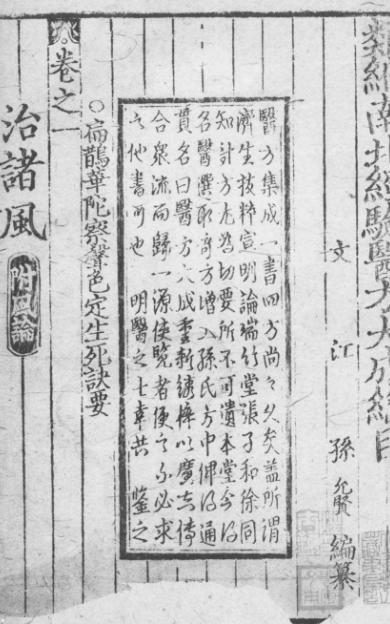 類編南北經驗醫方大成總目
文江 孫允賢 編纂
醫方集成一書四方尚之久矣盖所謂
濟生拔粹宣明論瑞竹堂張子和徐同
知計方尤為切要所不可遺本堂今得
名醫選取奇方增入孫氏方中俾得通
貫名曰醫方大成重新綉梓以廣其傳
合衆流而歸一源使覽者便之不必求
之他書可也 明醫之士幸共 鑒之
○扁鵲華陀察聲色定生死訣要
卷之一
治諸風 附風論